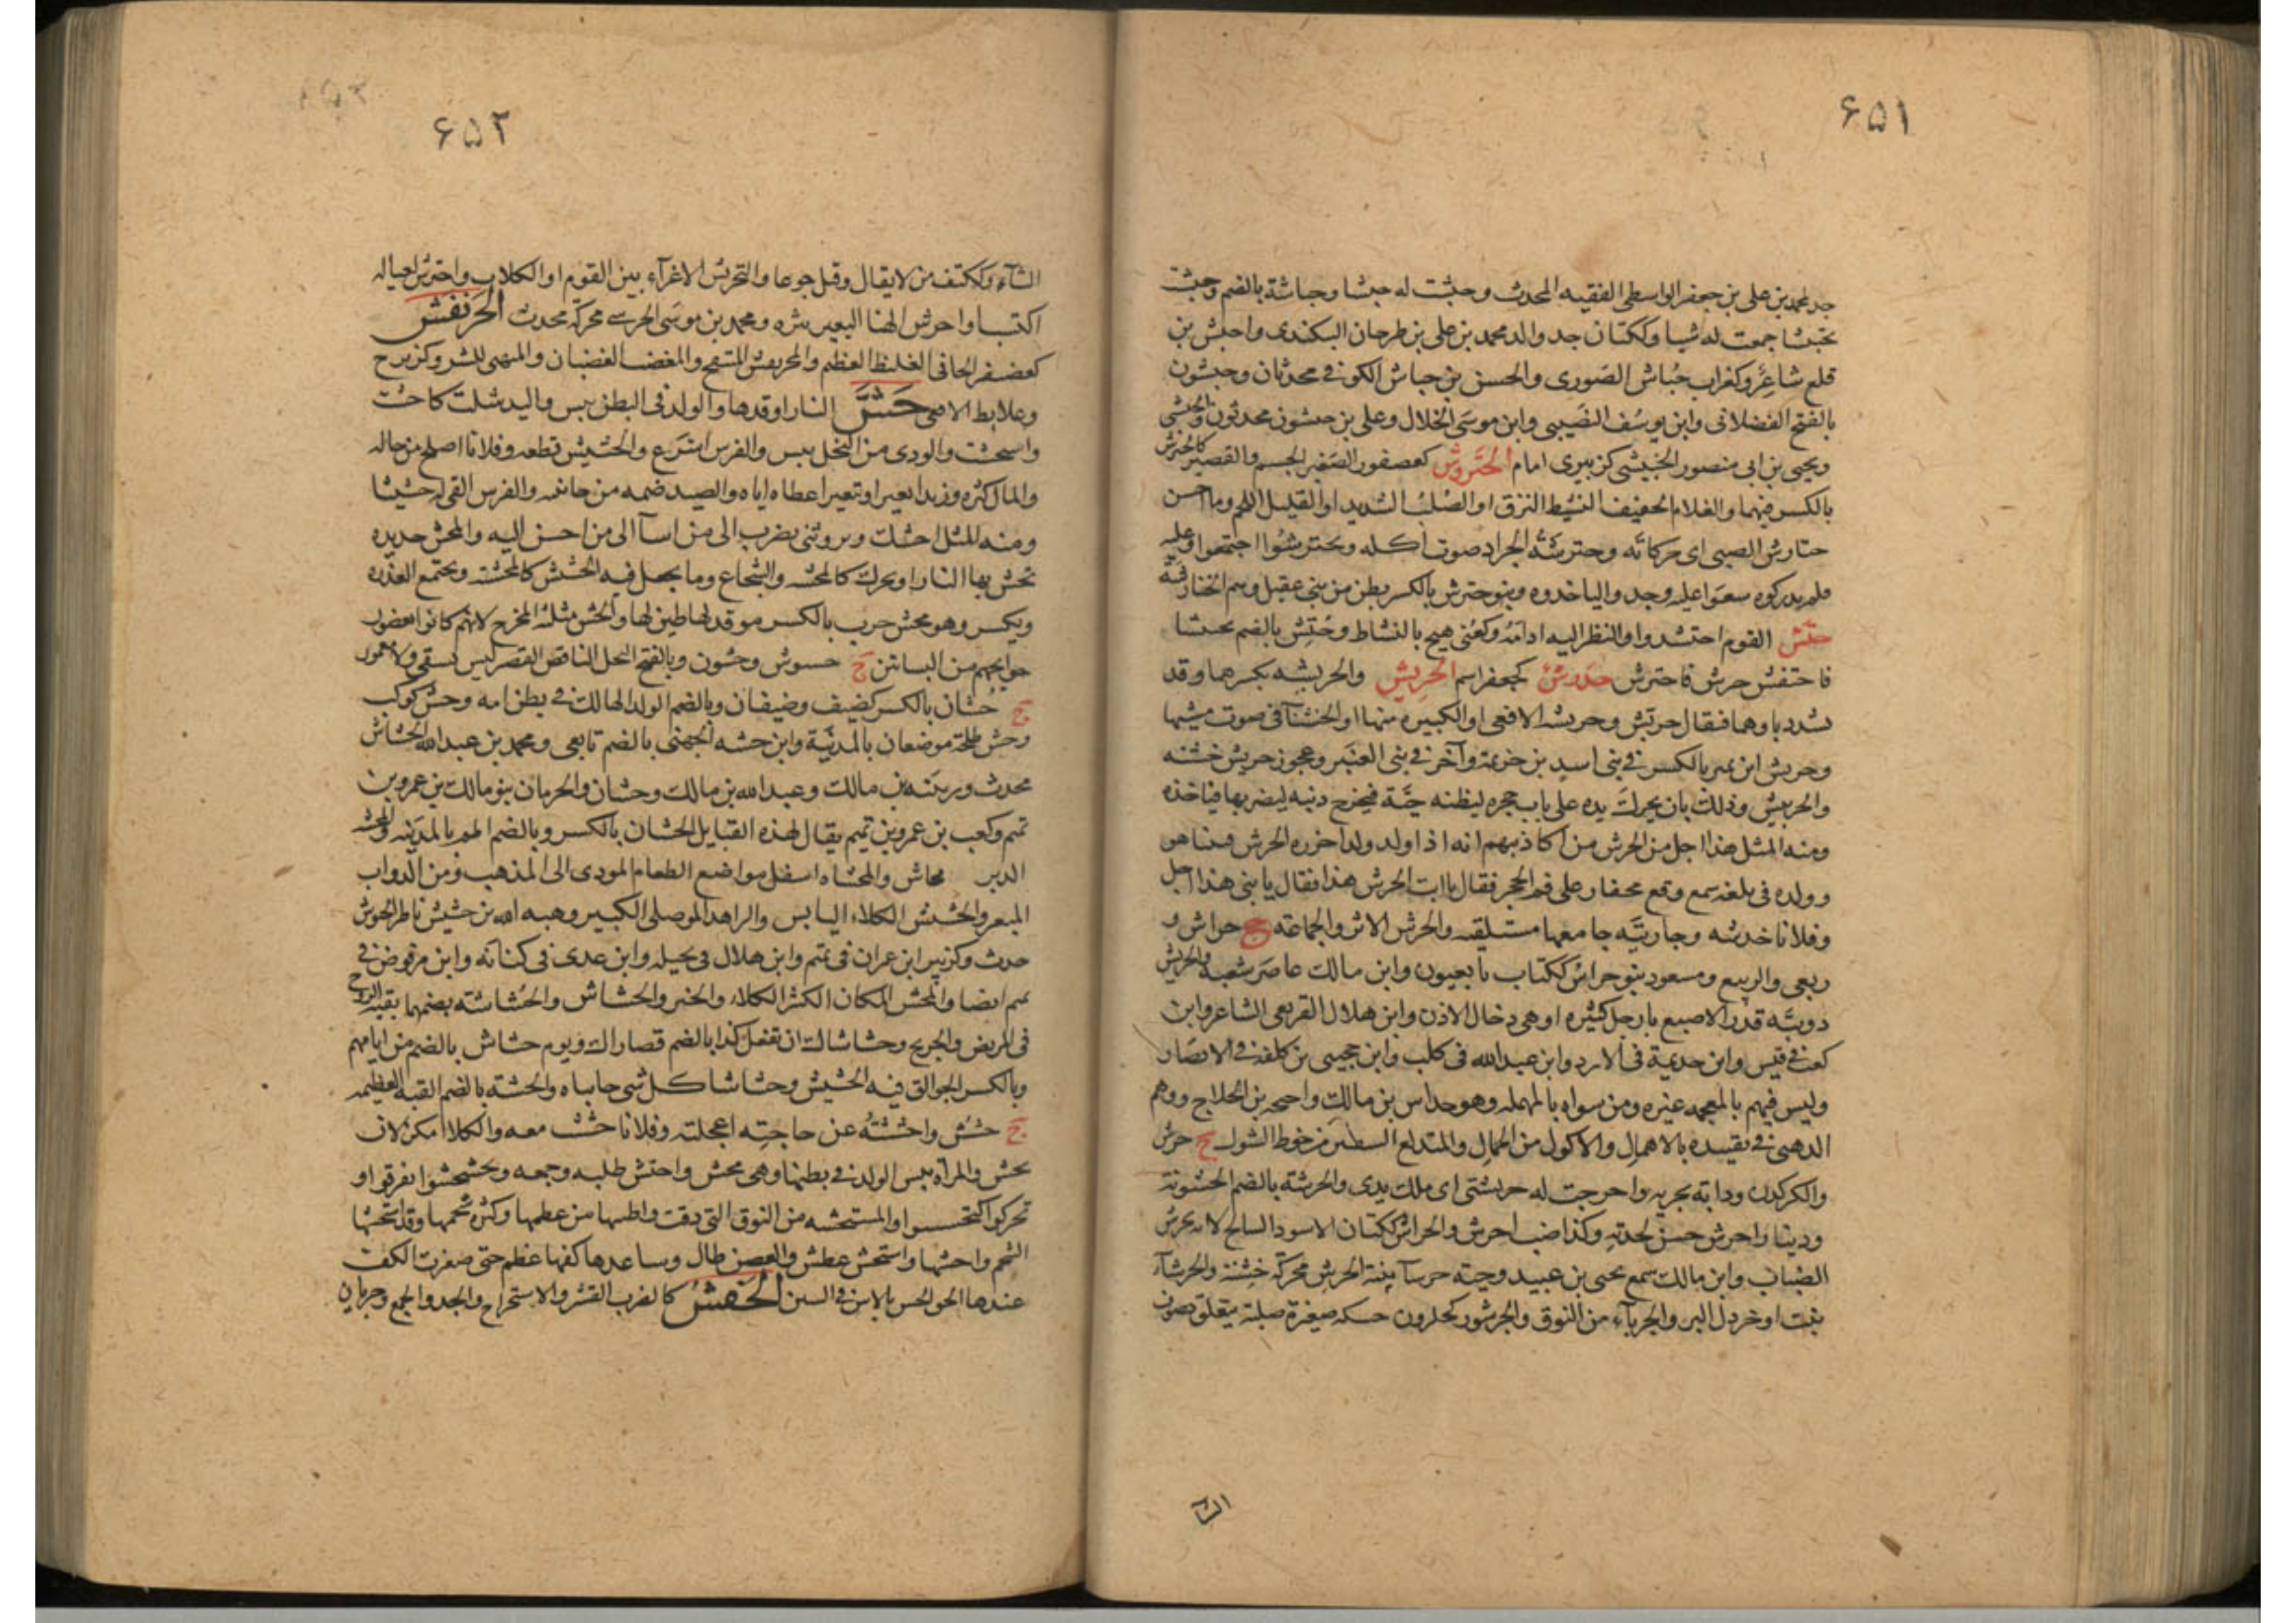 ۶۵۱
جد لمحمد بن علی بن جعفر الواسطی الفقیه المحدث وحبشت له حبشا وحباشة بالضم وحبشت
تحبشا جمعت له شیا وککتان جد والد محمد بن علی بن طرخان البیکندی واحبش بن
قلع شاعر وکغراب حباش الصوری والحسن بن حباش الکوفی محدثان وحبشون
بالفتح الفضلانی وابن یوسف النصیبی وابن موسی الخلال وعلی بن حبشون محدثون والحبشی
ویحیی بن ابی منصور الحبیشی کزبیری امام الحتروش کعصفور الصغیر الجسم والقصیر کالحترش
بالکسر فیهما والغلام الخفیف النشیط النزق او الصلب الشدید او القلیل اللحم وما احسن
حتارش الصبی ای حرکاته وحترشة الجراد صوت اکله وتحترشوا اجتمعوا وعلیه
فلم یدرکوه سعوا علیه وجد والیاخذوه وبنو حترش بالکسر بطن من بنی عقیل وهم الحتارشة
حتش القوم احتشدوا والنظر الیه ادامه وکعنی هیج بالنشاط وحتش بالضم تحتشا
فاحتفش حرش فاحترش حدرش کجعفر اسم الحربش والحربشه بکسرهما وقد
تشدد باوهما فیقال حربش وحربشه الافعی او الکبیره منها او الخشنآ فی صوت مشیها
وحربش ابن نمیر بالکسر فی بنی اسد بن خزیمة وآخر فی بنی العنبر وعجوز حربش خشنه
والحربیش وذلک بان یحرک یده علی باب جحره لیظنه حیة فیخرج ذنبه لیضربها فیاخذه
ومنه المثل هذا اجل من الحرش من اکاذیبهم انه اذا ولد ولدا حذره الحرش فبینا هو
وولده فی بلغه سمع وقع محفار علی فم الحجر فقال یا ابت الحرش هذا فقال یا بنی هذا اجل
وفلانا خدشه وجاریته جامعها مستلقیه والحرش الاثر والجماعة ج حراش و
ربعی والربیع ومسعود بنو حراش ککتاب تابعیون وابن مالک عاصر شعبة والحریش
دویبة قدر الاصبع بارجل کثیره او هی دخال الاذن وابن هلال القریعی الشاعر وابن
کعب فی قیس وابن جذیمة فی الازد وابن عبد الله فی کلب وابن جحجبی بن کلفة فی الانصار
ولیس فیهم بالمعجمه غیره ومن سواه بالمهمله وهو حداس بن مالک واحیحه بن الجلاح ووهم
الذهبی فی تقییده بالاهمال والاکول من الجمال والمتدلع الشفتین من خرط الشوک ج حرش
والکرکدن ودابه بحریه واخرجت له حریشتی ای ملک یدی والحرشة بالضم الخشونة
ودینار احرش خشن لجدته وکذا ضب احرش والحراش ککتان الاسود السالخ لانه یحرش
الضباب وابن مالک سمع یحیی بن عبید وحیة حرشآ بینة الحرش محرکة خشنة والحرشآء
نبت او خردل البر والجربآء من النوق والحرشون کحلزون حسکه صغیرة صلبة یتعلق بصوف
الشآء
۶۵۲
الشآء وککتف من لا ینام وقیل جوعا والتحریش الاغرآء بین القوم او الکلاب واحترش لعیاله
اکتسب واحرش الهنا البعیر بثره ومحمد بن موسی الحرشی محرکة محدث الحرنفش
کغضنفر الجافی الغلیظ العظیم والمحرنفش المنتفخ والمغضب الغضبان والمتهیی للشر وکزبرج
وعلابط الافعی حش النار اوقدها والولد فی البطن یبس والید شلت کاحشت
واستحشت والودی من النخل یبس والفرس اسرع والحشیش قطعه وفلانا اصلح من حاله
والمال کثره وزیدا بعیرا وببعیر اعطاه ایاه والصید ضمه من جانبیه والفرس القی له حشیشا
ومنه المثل احشک وتروثنی یضرب الی من اسآ الی من احسن الیه والمحش حدیده
تحش بها النار ای تحرک کالمحشه والشجاع وما یجعل فیه الحشیش کالمحشة ومجتمع العذره
ویکسر وهو محش حرب بالکسر موقد لها طبن لها والحش مثلثة المخرج لانهم کانوا یقضون
حوایجهم من البساتین ج حشوش وحشون وبالفتح النخل الناقص القصیر لیس بمسقی ولا معمور
ج حشان بالکسر کضیف وضیفان وبالضم الولد الهالک فی بطن امه وحش کوکب
وحش طلحة موضعان بالمدینة وابن حشه الجهنی بالضم تابعی ومحمد بن عبد الله الحشاش
محدث وربیعه بن مالک وعبد الله بن مالک وحشان والحرمان بنو مالک بن عمرو بن
تمیم وکعب بن عمرو بن تمیم یقال لهذه القبایل الحشان بالکسر وبالضم اطم بالمدینه والمحشه
الدبر محاش والمحشاه اسفل مواضع الطعام المودی الی المذهب ومن الدواب
المبعر والحشیش الکلاء الیابس والزاهد الموصلی الکبیر وهبه الله بن حشیش ناظر الجیوش
حدث وکزبیر ابن عمران فی تمیم وابن هلال فی بجیله وابن عدی فی کنانه وابن مرقوض فی
تمیم ایضا والمحش المکان الکثیر الکلاء والخیر والحشاش والحشاشته بضمهما بقیه الروح
فی المریض والجریح وحشاشاک ان تفعل کذا بالضم قصاراک ویوم حشاش بالضم من ایامهم
وبالکسر الجوالق فیه الحشیش وحشاشا کل شی جانباه والحشة بالضم القبه العظیمه
ج حشش واحششته عن حاجته اعجلته وفلانا حششت معه والکلاء امکن لان
یحش والمرآه یبس الولد فی بطنها وهی محش واحتش طلبه وجمعه وتحشحشوا تفرقوا و
تحرکوا کتحسسوا والمستحشه من النوق التی دقت واظلفها من عظمها وکثرة شحمها وقد استحشها
الشحم واحشها واستحش عطش والغصن طال وساعدها کفها عظم حتی صغرت الکف
عندها الحق الحس بالاس فی السین الحفش کالضرب القشر والاستخراج والجد والجمع وجریان